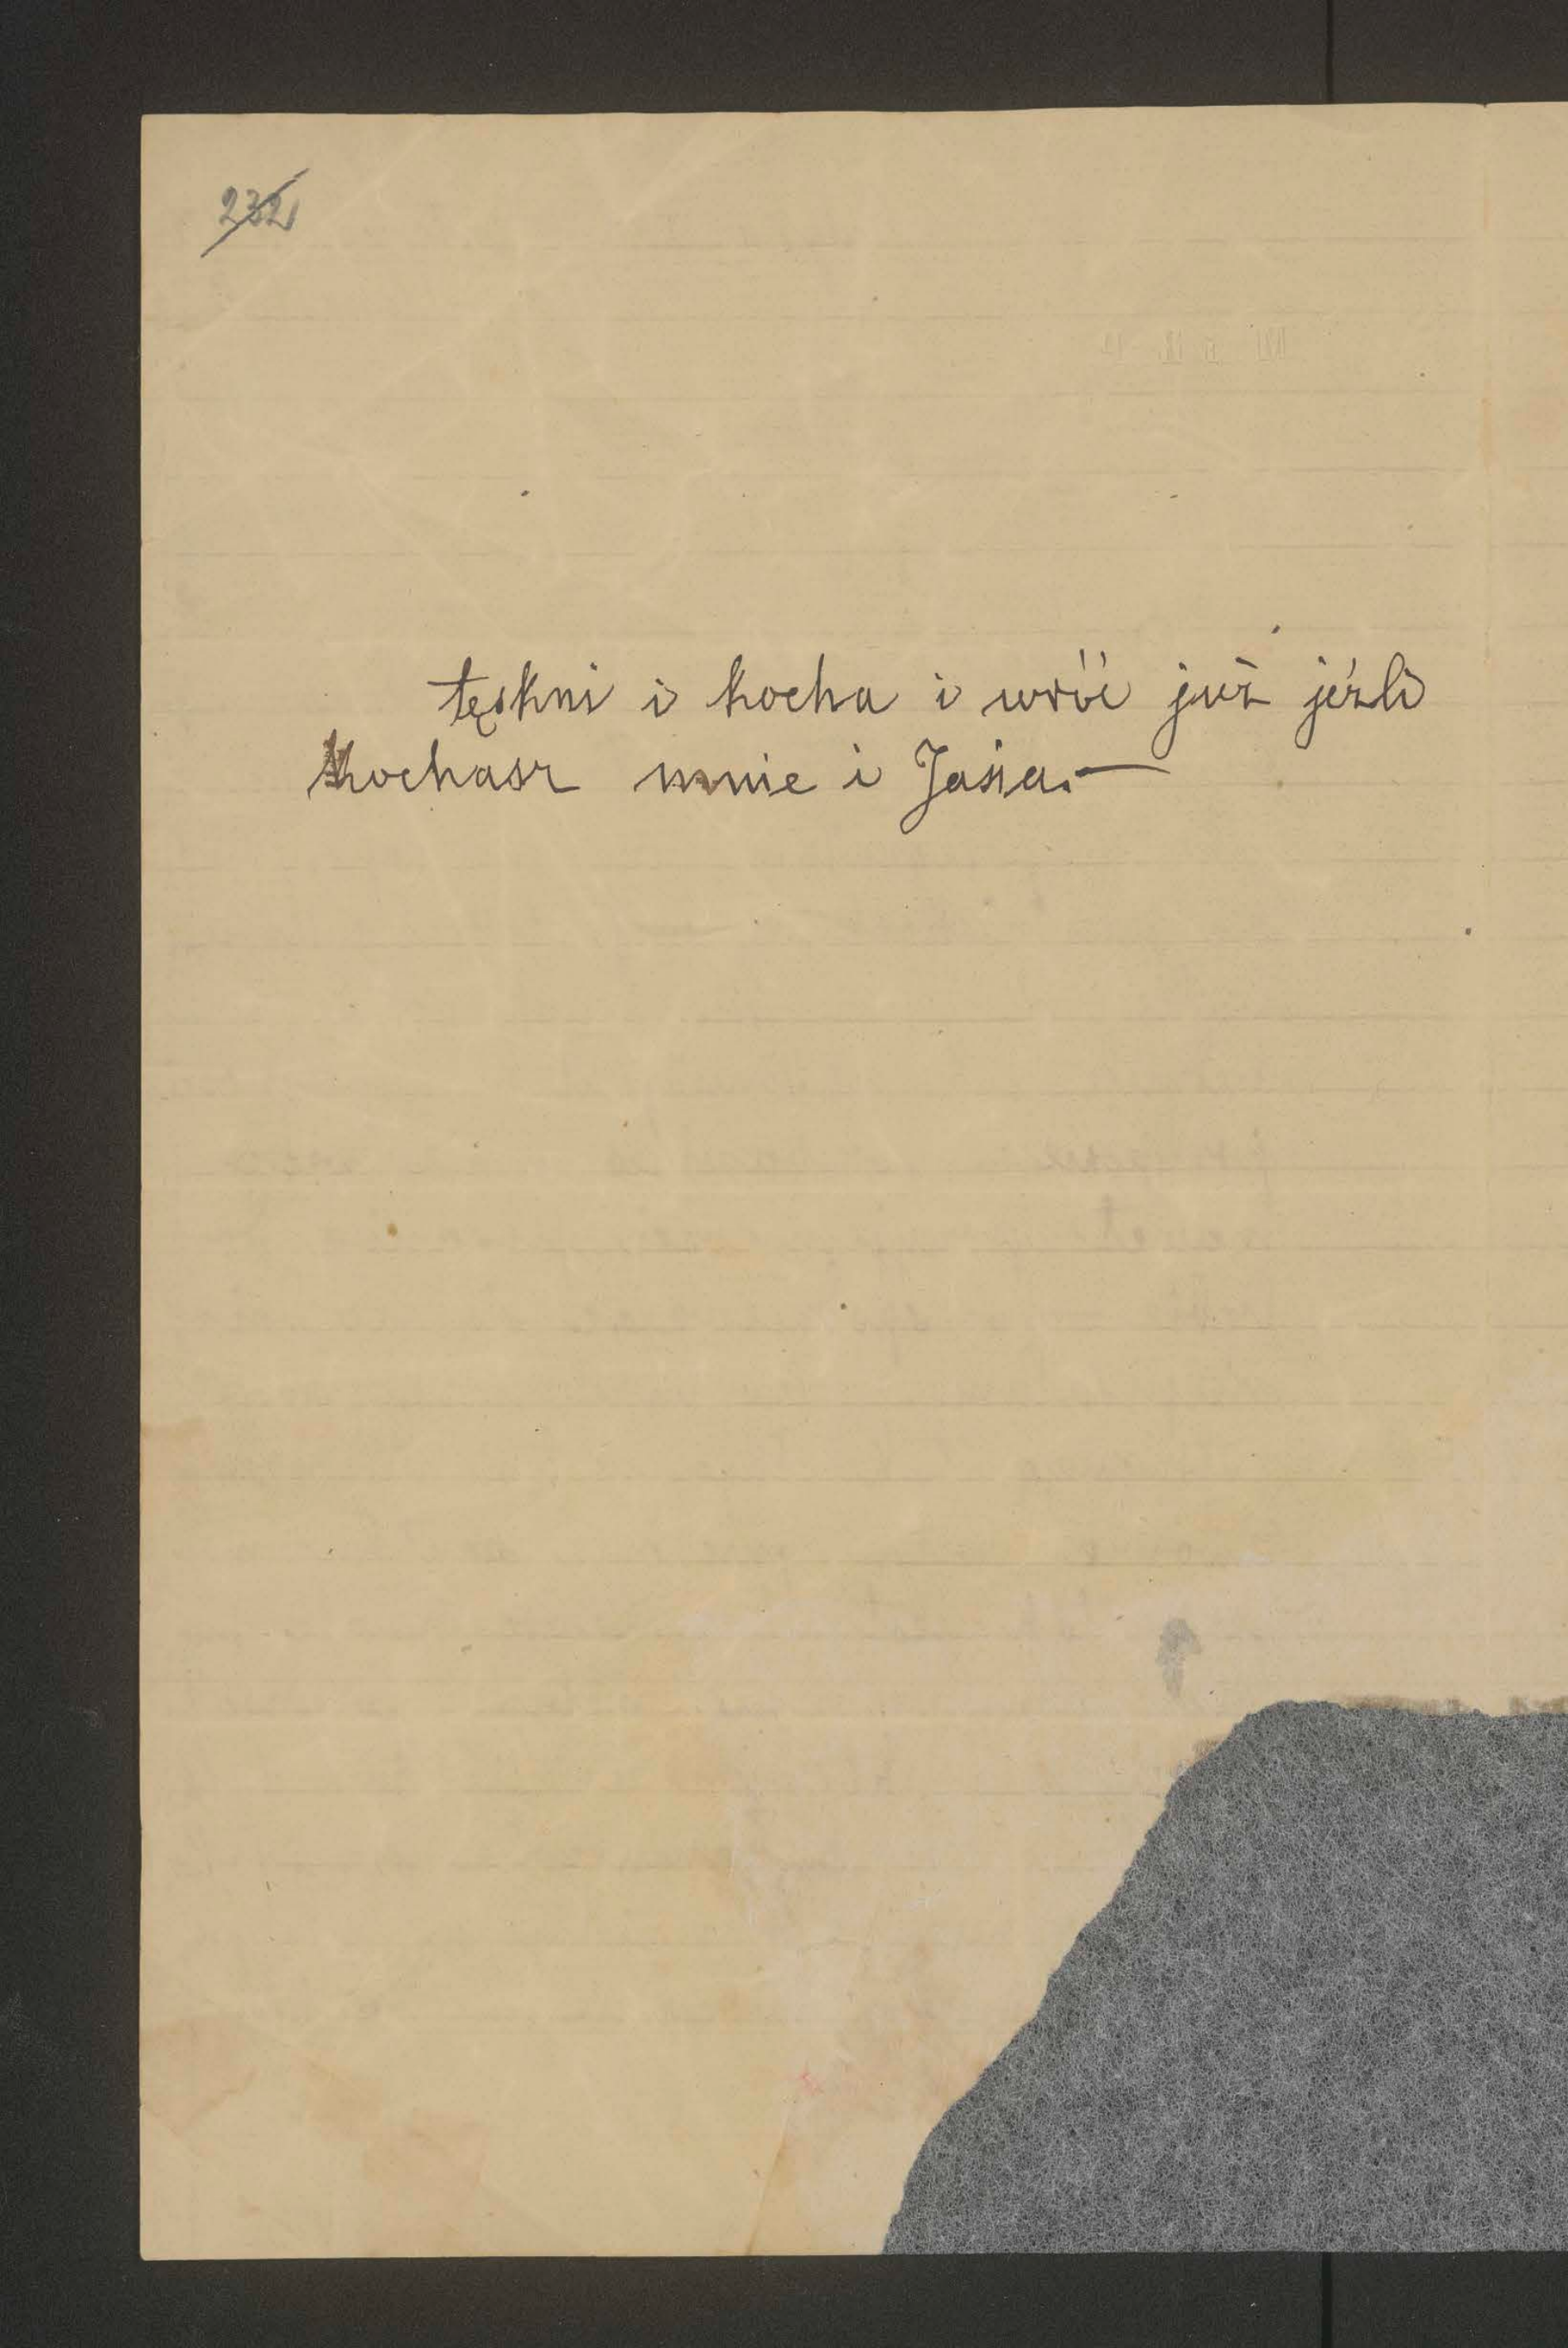 232
tęskni i kocha i wróć już jeźli
kochasz mnie i Jasia.—